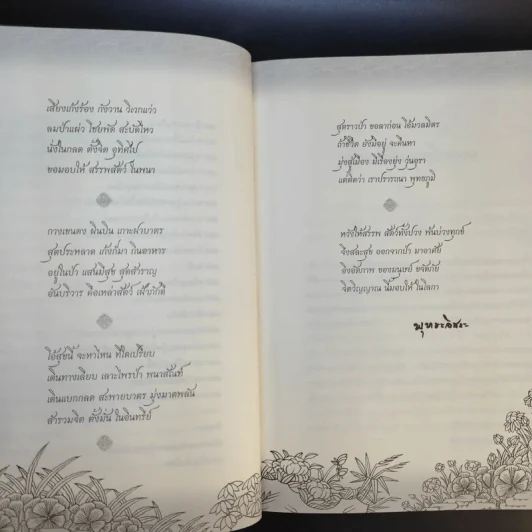 เสียงเก้งร้อง กังวาน วิเวกแว่ว
ลมป่าแผ่ว โชยพัด สะบัดไหว
นั่งในกลด ตั้งจิต อุทิศไป
ขอมอบให้ สรรพสัตว์ ในพนา
กวางเขนดง ผินบิน เกาะฝาบาตร
สุดประหลาด เก้งก็มา กินอาหาร
อยู่ในป่า แสนมีสุข สุดสำราญ
อันบริวาร คือเหล่าสัตว์ เฝ้าภักดี
โอ้สุขนี้ จะหาไหน ที่ใดเปรียบ
เดินทางเลียบ เลาะไพรป่า พนาสัณฑ์
เดินแบกกลด สะพายบาตร มุ่งมาดพลัน
สำรวมจิต ตั้งมั่น ในอินทรีย์
สุดราวป่า ขอลาก่อน โอ้มวลมิตร
ถ้าชีวิต ยังมีอยู่ จะคืนหา
มุ่งสู่เมือง มีเรื่องยุ่ง วุ่นอุรา
แต่คิดว่า เราปรารถนา พุทธภูมิ
หวังให้สรรพ สัตว์ทั้งปวง พ้นบ่วงทุกข์
จึงสละสุข ออกจากป่า มาอาศัย
อิงอัตภาพ ของมนุษย์ ขจัดภัย
จิตวิญญาณ นี้มอบให้ ในโลกา
พุทธะอิสระ